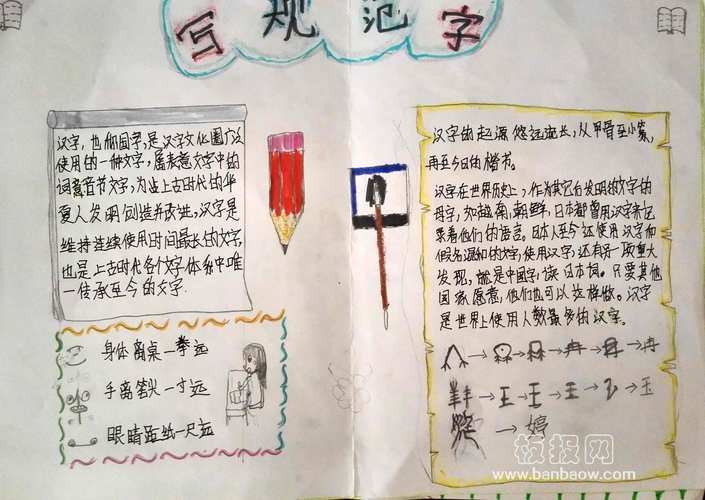 写规范字
汉字，也称国字，是汉字文化圈广泛
使用的一种文字，属表意文字中的
词素音节文字，为上古时代的华
夏人发明创造并改进，汉字是
维持连续使用时间最长的文字，
也是上古时代各个文字体系中唯
一传承至今的文字.
身体离桌一拳远
手离笔尖一寸远
眼睛距纸一尺远
汉字的起源悠远流长，从甲骨至小篆，
再至今日的楷书。
汉字在世界历史上，作为其它自发明的文字的
母字，如越南，朝鲜，日本都曾用汉字来记
录着他们的语言。日本人至今还使用汉字和
假名混和的文字，使用汉字，还有一项重大
发现，就是中国字，读日本词。只要其他
国家愿意，他们也可以这样做。汉字
是世界上使用人数最多的汉字。
→ → → 冉 → → 冉
→ 王 → 王 → 王 → → 玉
→ 婷
板报网
www.banbaow.com